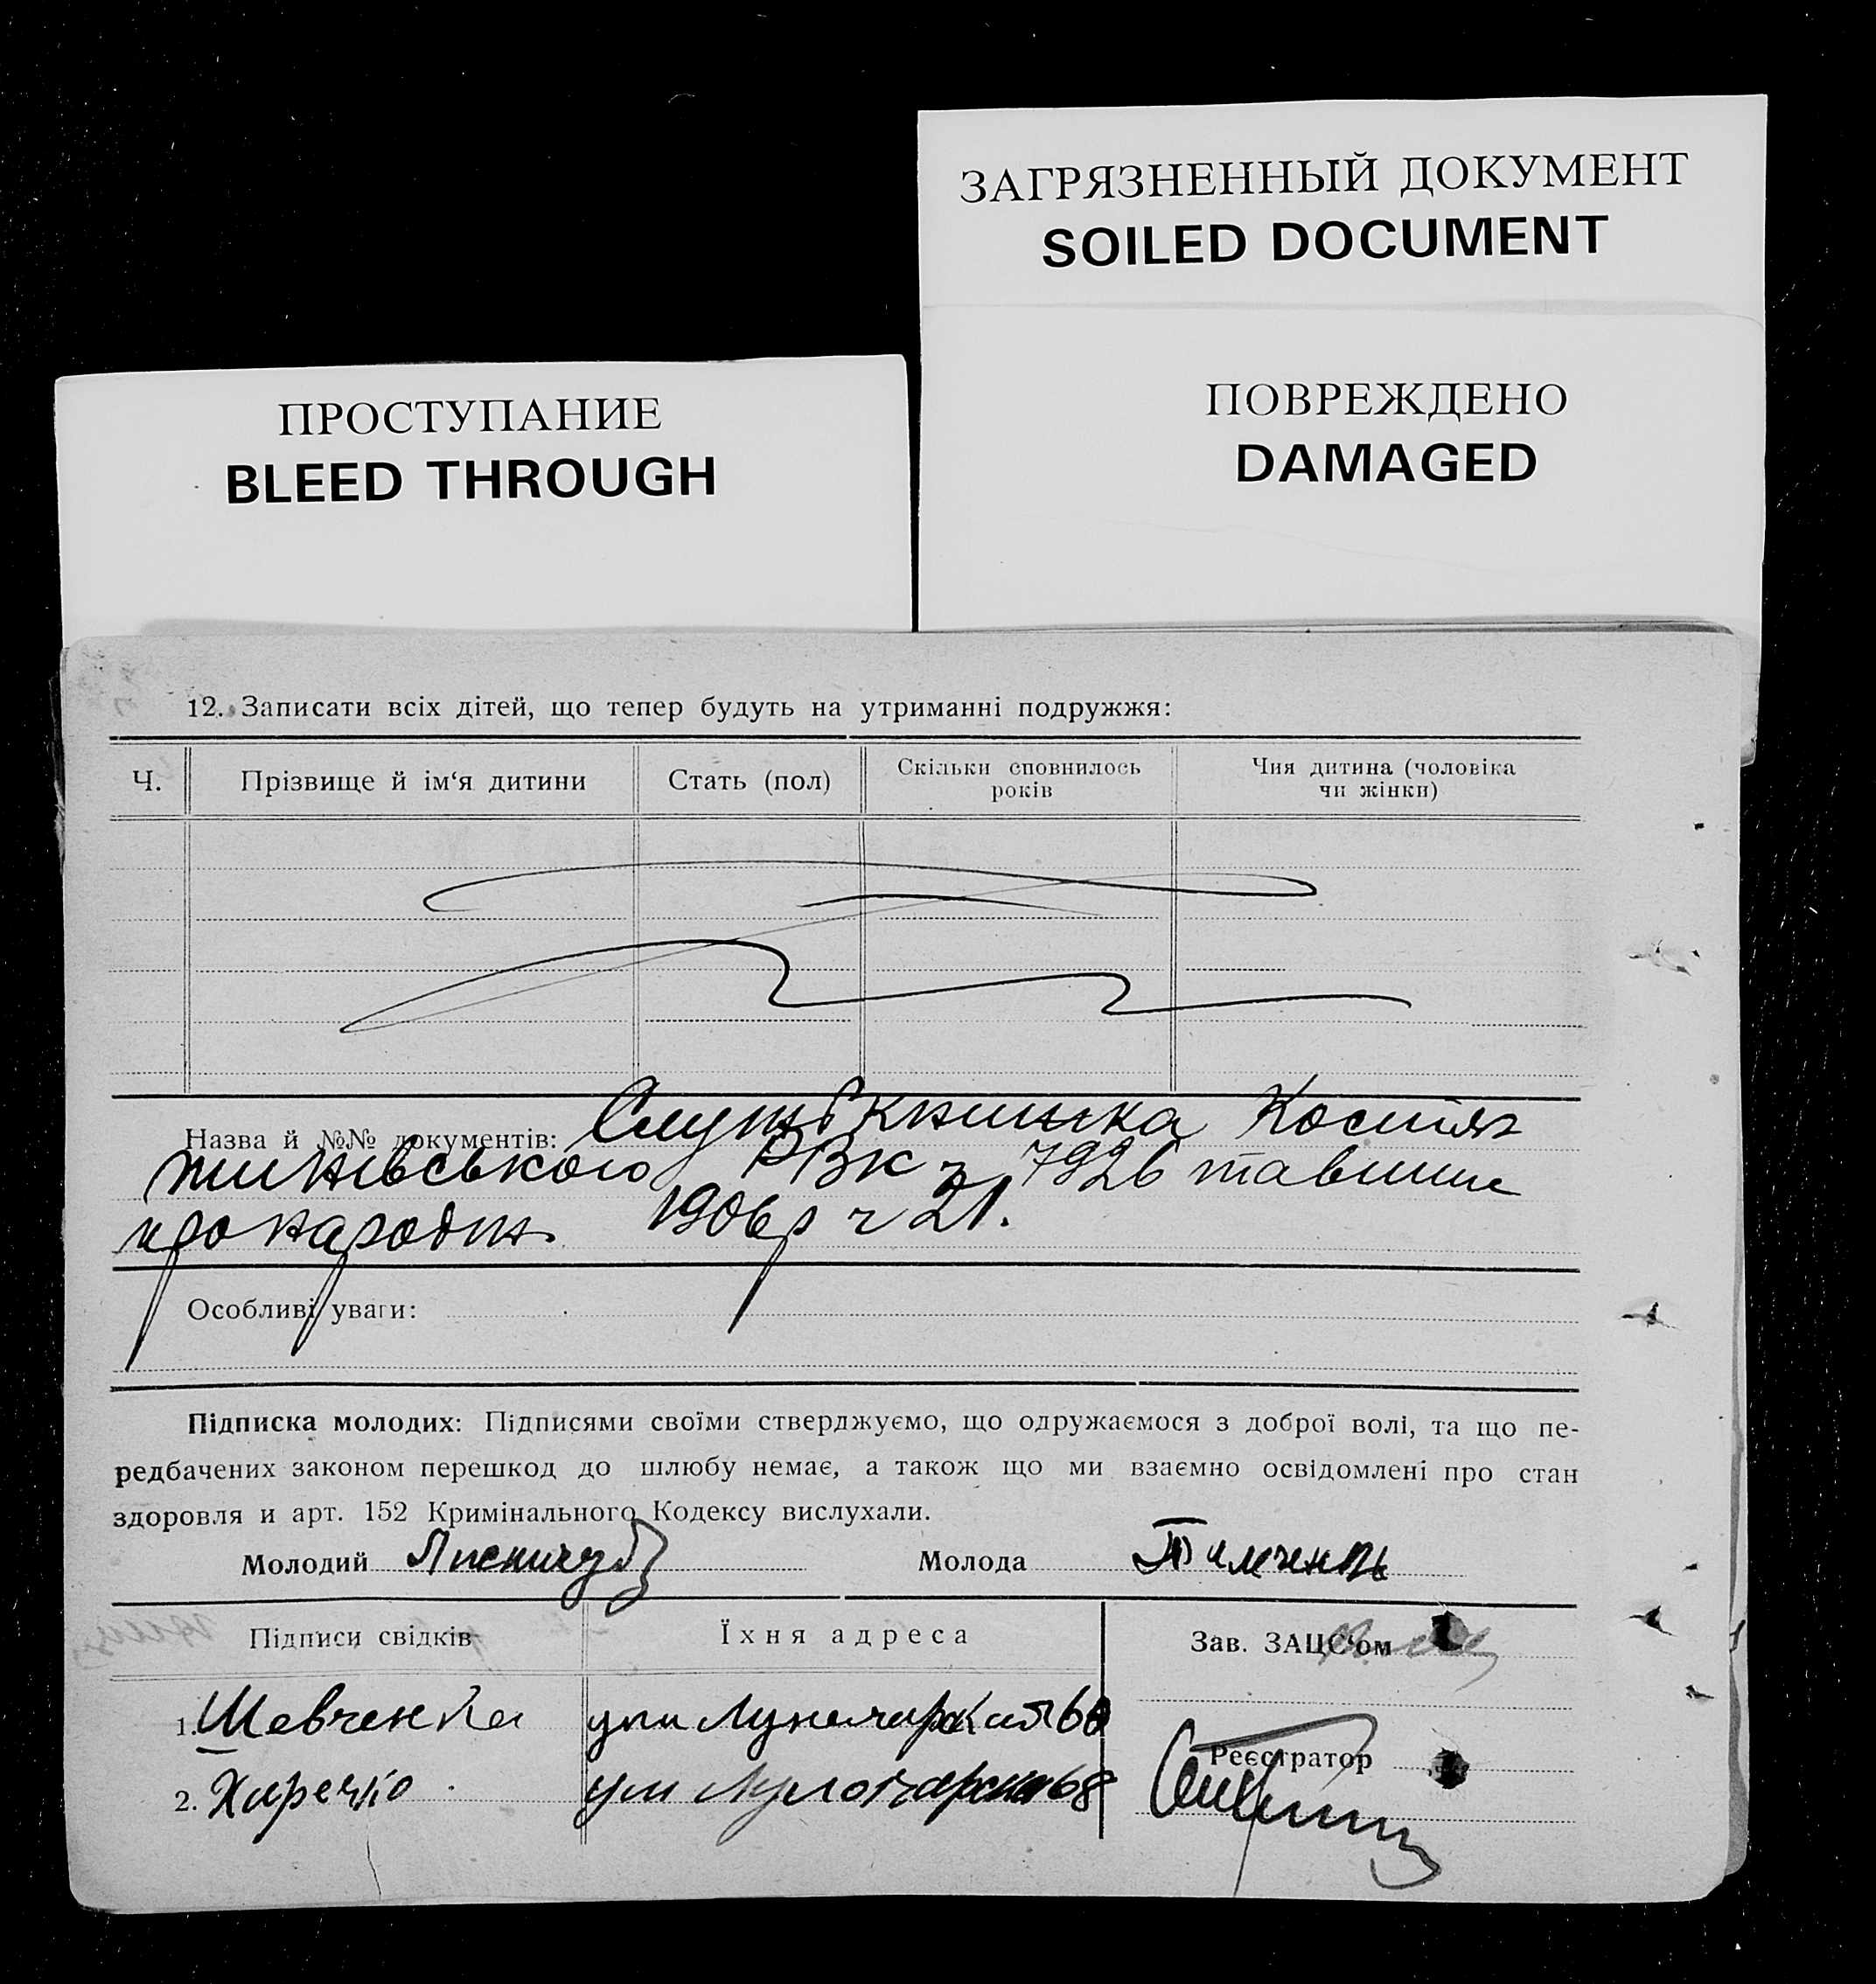 ЗАГРЯЗНЕННЫЙ ДОКУМЕНТ
SOILED DOCUMENT
ПОВРЕЖДЕНО
DAMAGED
ПРОСТУПАНИЕ
BLEED THROUGH
12. Записати всіх дітей, що тепер будуть на утриманні подружжя:
Ч.
Прізвище й ім‘я дитини
Стать (пол)
Скільки сповнилось
років
Чия дитина (чоловіка
чи жінки)
Назва й №№ документів: Служб книжка Костян
тинівського РВК ч 7926 та виписи
про народж. 1906 р ч 21.
Особливі уваги:
Підписка молодих: Підписями своїми стверджуємо, що одружаємося з доброї волі, та що пе-
редбачених законом перешкод до шлюбу немає, а також що ми взаємно освідомлені про стан
здоровля и арт. 152 Кримінального Кодексу вислухали.
Молодий
Молода
Підписи свідків
Їхня адреса
Зав. ЗАЦС‘ом
1. Шевченко
2.
68
Реєстратор